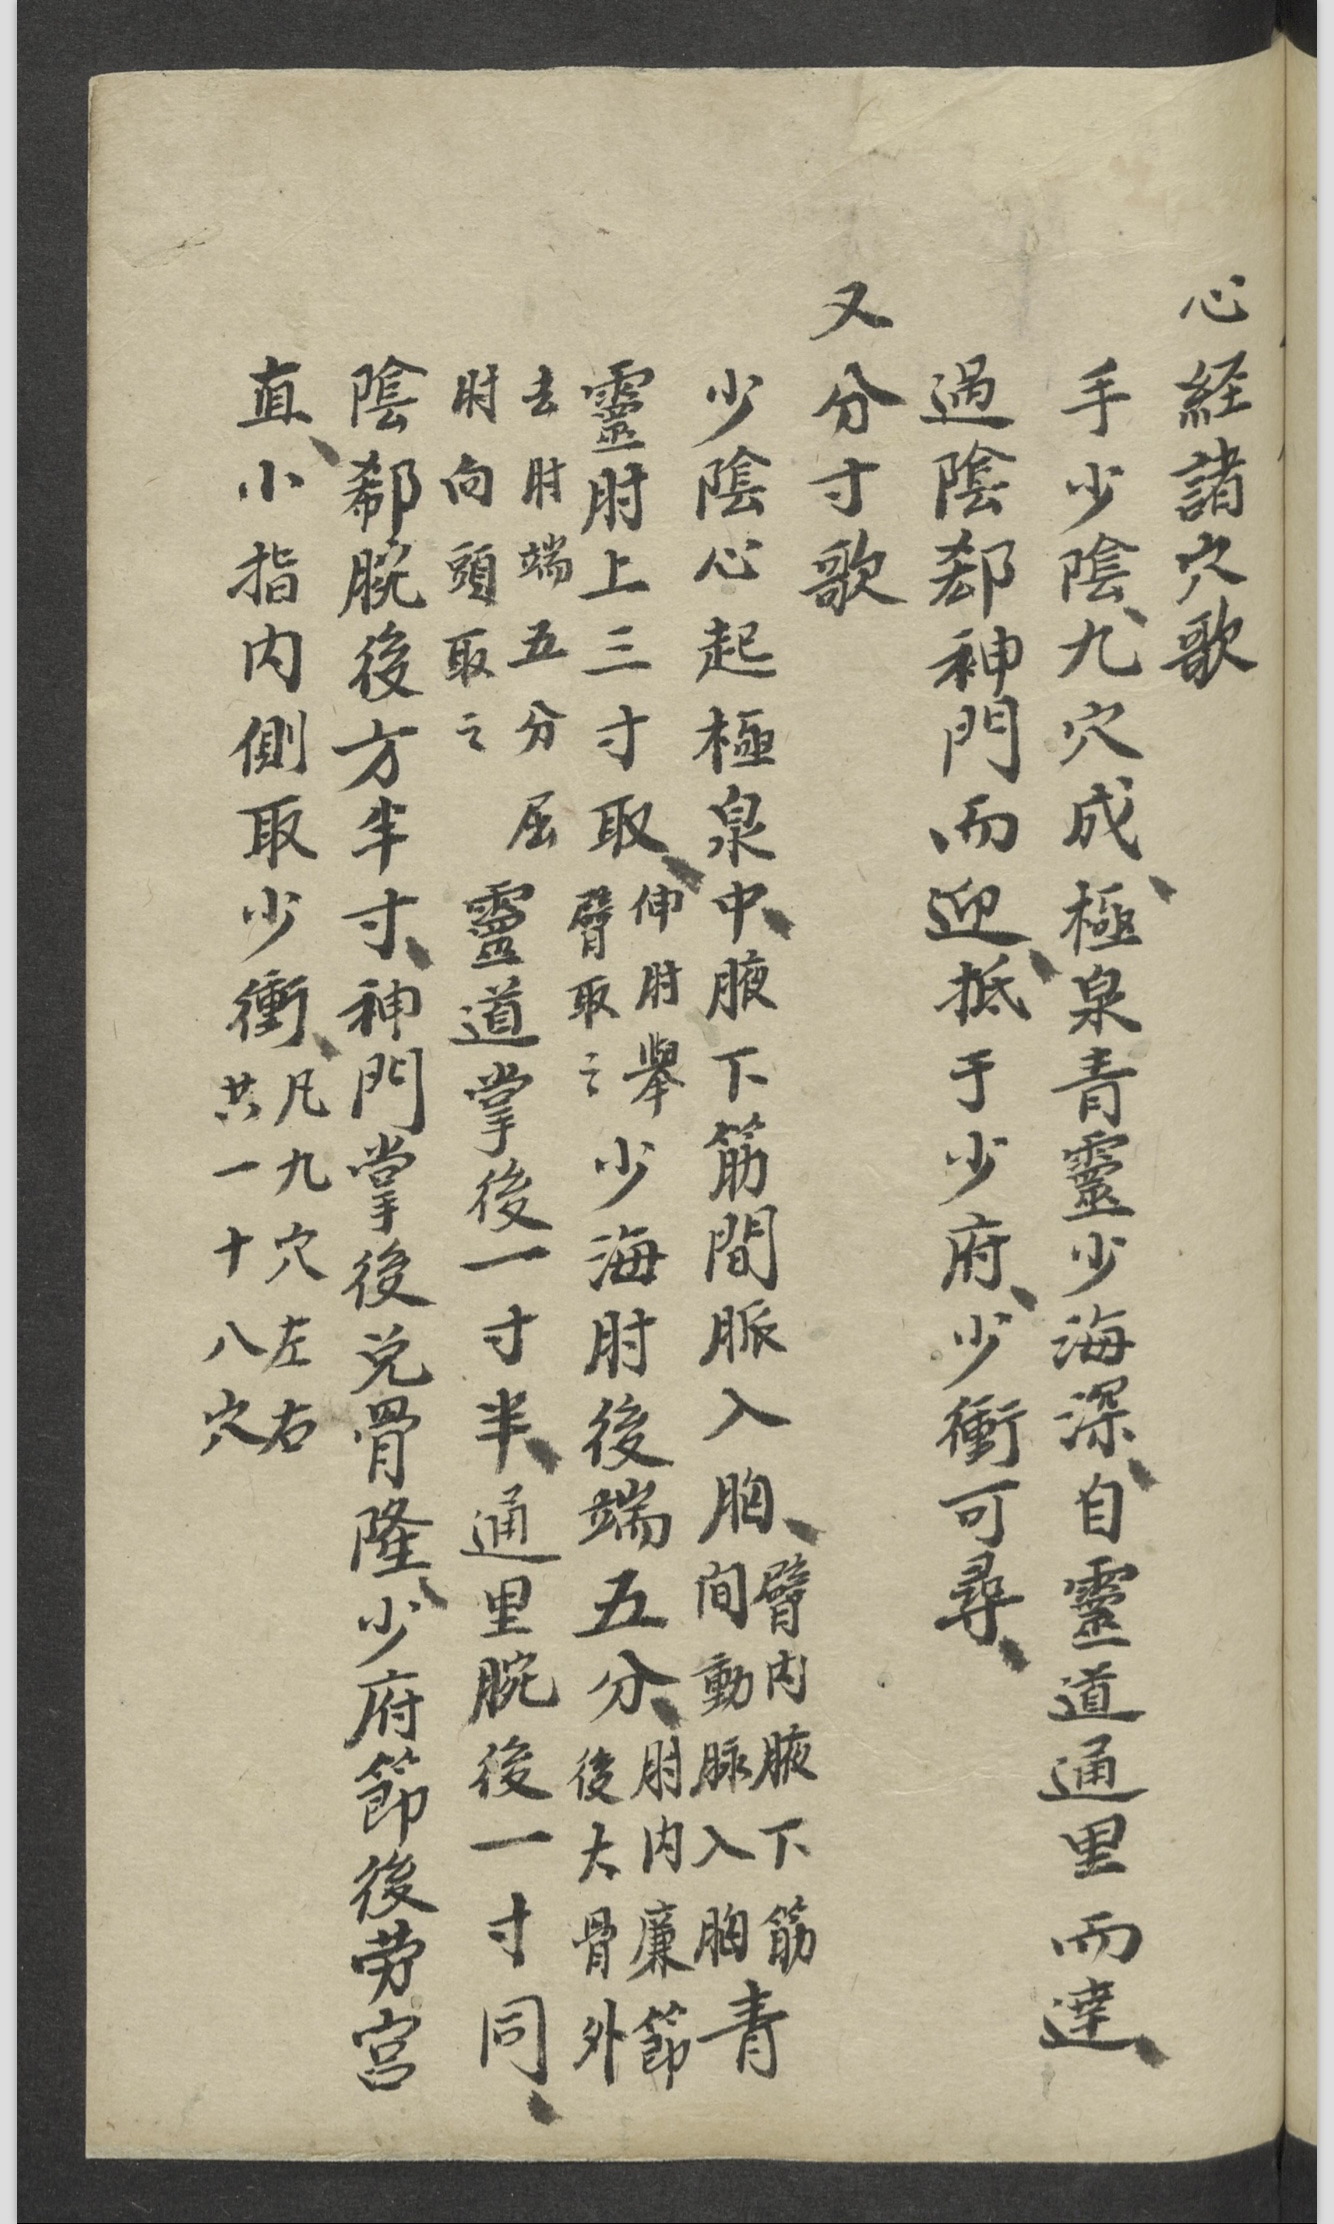 心経諸穴歌
手少陰、九穴成、極泉青靈少海深、自靈道通里而達、
過陰郄神門而迎、抵于少府、少衝可尋、
又分寸歌
少陰心起極泉中、腋下筋間脈入胸、臂内腋下筋間動脉入胸青
靈肘上三寸取、伸肘舉臂取之少海肘後端五分、肘内廉節後大骨外
去肘端五分屈肘向頭取之靈道掌後一寸半、通里腕後一寸同、
陰郄腕後方半寸、神門掌後兑骨隆、少府節後劳宫
直、小指内側取少衝、凡九穴左右共一十八穴